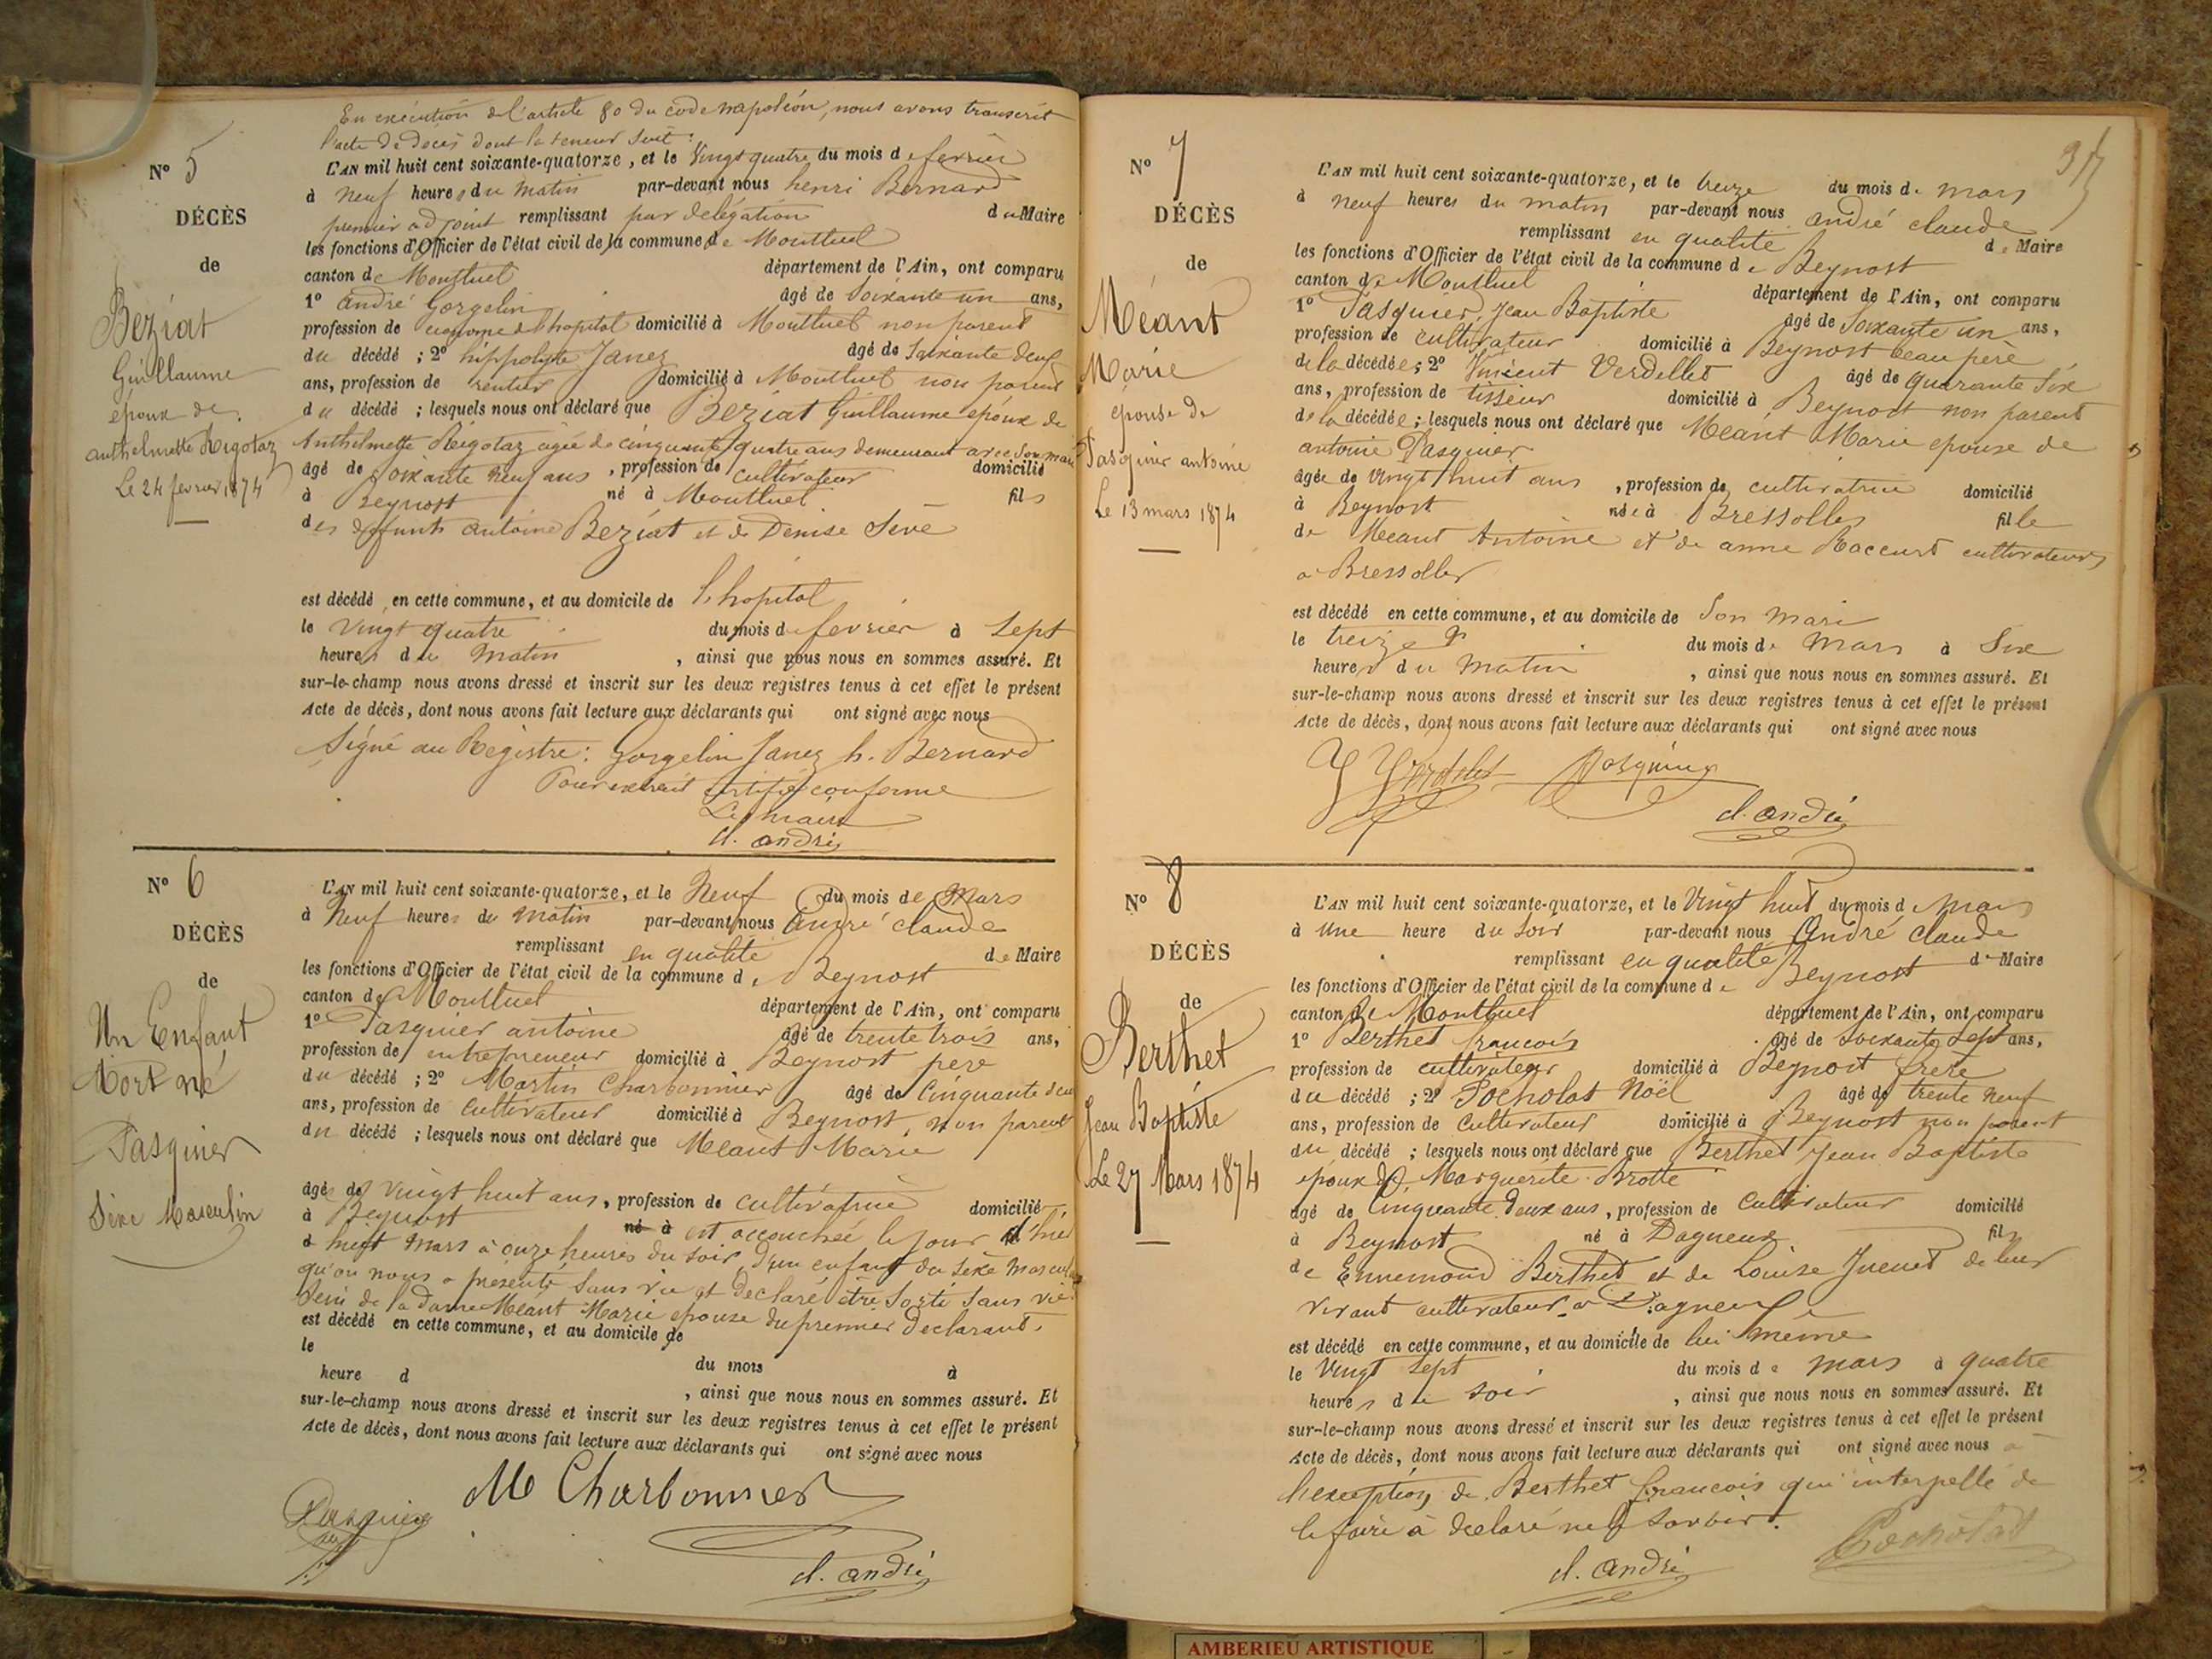 En exécution de l'article 80 du code napoléon, nous avons transcrit
l'acte de décès dont la teneur suit :
N° 5
DÉCÈS
de
Beziat
Guillaume
époux de
anthelmette Rigotaz
Le 24 fevrier 1874
L'AN mil huit cent soixante-quatorze, et le Vingt quatre du mois de fevrier
à neuf heures du matin par-devant nous henri Bernard
premier adjoint remplissant par delegation du Maire
les fonctions d'Officier de l'état civil de la commune de Montluel
canton de Montluel département de l'Ain, ont comparu
1° andré Gorgelin âgé de soixante un ans,
profession de econome de l'hopital domicilié à Montluel non parent
du décédé ; 2° hippolyte Janez âgé de soixante deux
ans, profession de rentier domicilié à Montluel non parent
du décédé ; lesquels nous ont déclaré que Beziat Guillaume époux de
Anthelmette Rigotaz agée de cinquante quatre ans demeurant avec son mari
âgé de soixante neuf ans, profession de cultivateur domicilié
à Beynost né à Montluel fils
des defunts antoine Beziat et de Denise Sève
est décédé en cette commune, et au domicile de l'hopital
le vingt quatre du mois de fevrier à sept
heures du matin, ainsi que nous nous en sommes assuré. Et
sur-le-champ nous avons dressé et inscrit sur les deux registres tenus à cet effet le présent
Acte de décès, dont nous avons fait lecture aux déclarants qui ont signé avec nous
Signé au Registre : Gorgelin Janez h. Bernard
Pour extrait certifié conforme
Le maire
cl. andré
N° 6
DÉCÈS
de
Un Enfant
Mort né
Pasquier
Sexe Masculin
L'AN mil huit cent soixante-quatorze, et le Neuf du mois de Mars
à Neuf heures du matin par-devant nous André claude
remplissant en qualité de Maire
les fonctions d'Officier de l'état civil de la commune de Beynost
canton de Montluel département de l'Ain, ont comparu
1° Pasquier antoine âgé de trente trois ans,
profession de entrepreneur domicilié à Beynost pere
du décédé ; 2° Martin Charbonnier âgé de Cinquante deux
ans, profession de cultivateur domicilié à Beynost, non parent
du décédé ; lesquels nous ont déclaré que Méant Marie
âgé de vingt huit ans, profession de cultivatrice domicilié
à Beynost né à est accouchée le jour d'hier
à huit mars à onze heures du soir, d'un enfant du sexe masculin
qu'on nous a présenté sans vie et declaré être sorti sans vie
Sein de la dame Méant Marie epouse du premier declarant.
est décédé en cette commune, et au domicile de
le du mois à
heure d, ainsi que nous nous en sommes assuré. Et
sur-le-champ nous avons dressé et inscrit sur les deux registres tenus à cet effet le présent
Acte de décès, dont nous avons fait lecture aux déclarants qui ont signé avec nous
Pasquier M Charbonnier
cl. andré
N° 7
DÉCÈS
de
Méant
Marie
epouse de
Pasquier antoine
Le 13 mars 1874
L'AN mil huit cent soixante-quatorze, et le treize du mois de mars
à neuf heures du matin par-devant nous andré claude
remplissant en qualité de Maire
les fonctions d'Officier de l'état civil de la commune de Beynost
canton de Montluel département de l'Ain, ont comparu
1° Pasquier, Jean Baptiste âgé de soixante un ans,
profession de cultivateur domicilié à Beynost beau père
de la décédée ; 2° Vincent Verdellet âgé de quarante six
ans, profession de tisseur domicilié à Beynost non parent
de la décédée ; lesquels nous ont déclaré que Méant Marie epouse de
antoine Pasquier
âgée de vingt huit ans, profession de cultivatrice domicilié
à Beynost née à Bressolles fille
de Meant Antoine et de anne Raccurt cultivateurs
a Bressolles
est décédé en cette commune, et au domicile de son mari
le treize du mois de mars à six
heures du matin, ainsi que nous nous en sommes assuré. Et
sur-le-champ nous avons dressé et inscrit sur les deux registres tenus à cet effet le présent
Acte de décès, dont nous avons fait lecture aux déclarants qui ont signé avec nous
Verdelet Pasquier
cl. andré
N° 8
DÉCÈS
de
Berthet
Jean Baptiste
Le 27 Mars 1874
L'AN mil huit cent soixante-quatorze, et le Vingt huit du mois de Mars
à une heure du soir par-devant nous André claude
remplissant en qualité de Maire
les fonctions d'Officier de l'état civil de la commune de Beynost
canton de Montluel département de l'Ain, ont comparu
1° Berthet francois âgé de soixante sept ans,
profession de cultivateur domicilié à Beynost frère
du décédé ; 2° Pocholat Noël âgé de trente neuf
ans, profession de cultivateur domicilié à Beynost non parent
du décédé ; lesquels nous ont déclaré que Berthet Jean Baptiste
époux de Marguerite Brotte
âgé de Cinquante deux ans, profession de cultivateur domicilié
à Beynost né à Dagneux fils
de Ennemond Berthet et de Louise Juenet de leur
vivant cultivateur a Dagneux
est décédé en cette commune, et au domicile de lui même
le vingt sept du mois de mars à quatre
heures du soir, ainsi que nous nous en sommes assuré. Et
sur-le-champ nous avons dressé et inscrit sur les deux registres tenus à cet effet le présent
Acte de décès, dont nous avons fait lecture aux déclarants qui ont signé avec nous a
l'exception de Berthet francois qui interpellé de
le faire à declaré ne savoir.
cl. andré Pocholat
AMBERIEU ARTISTIQUE